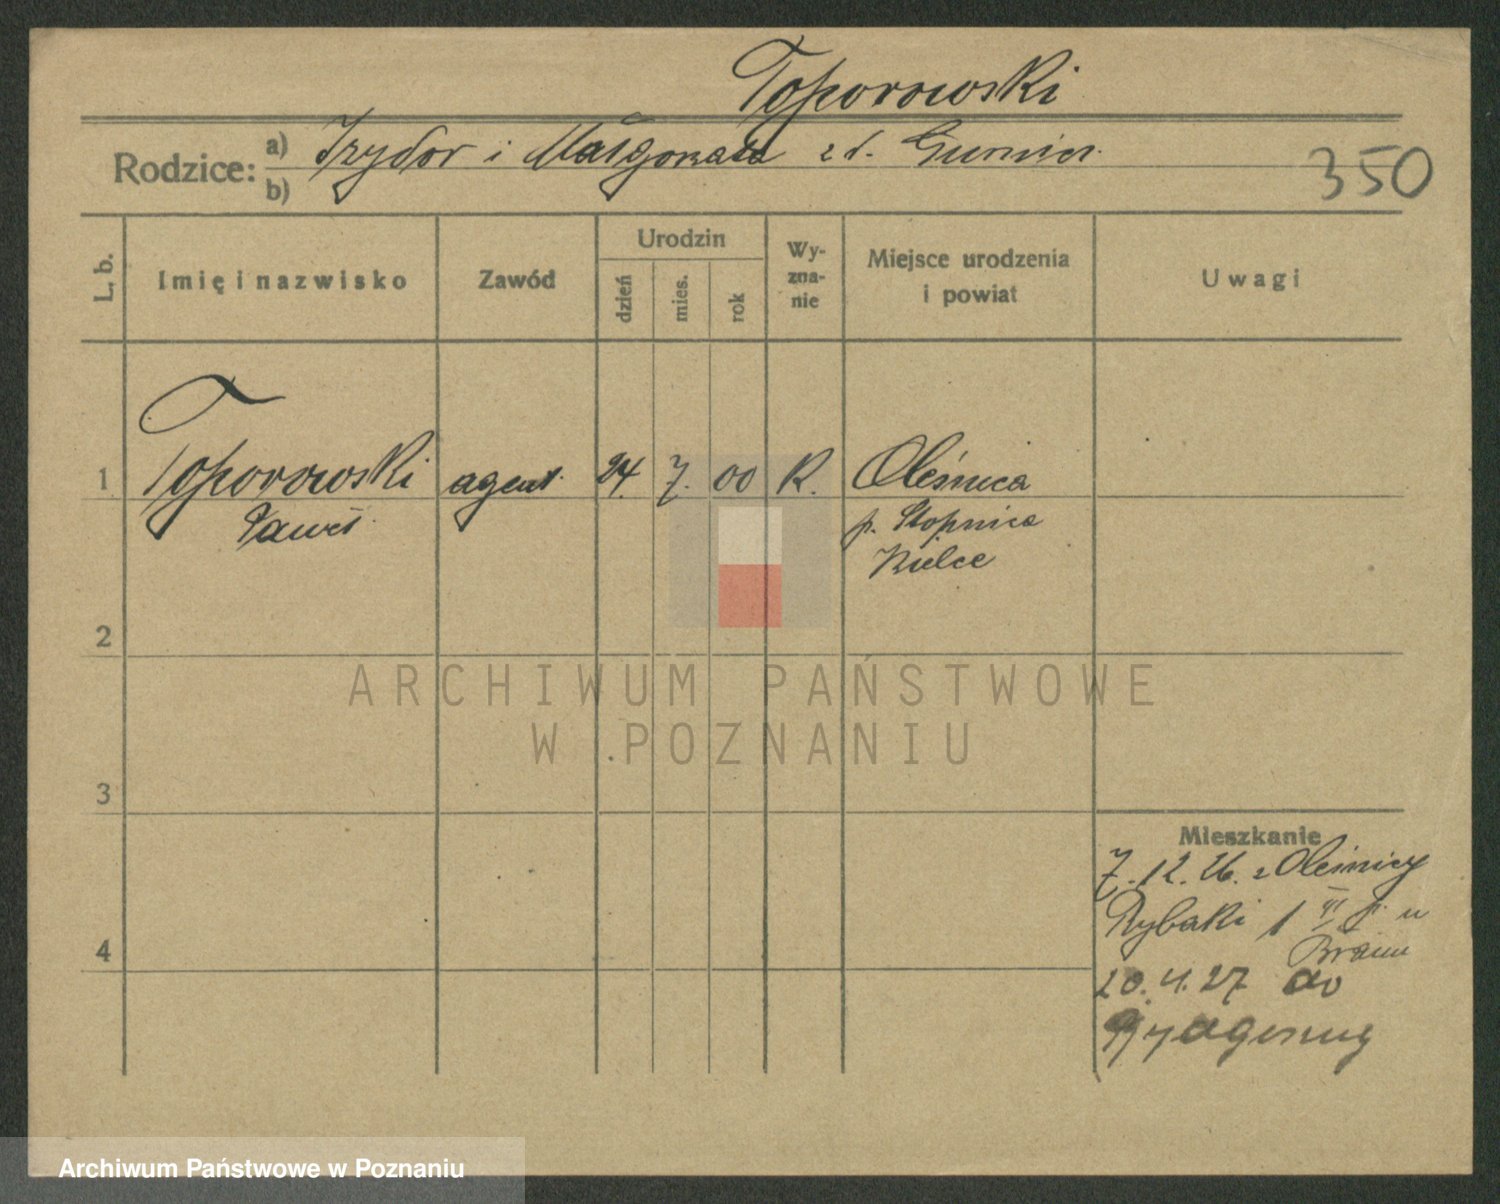 Toporowski
Rodzice: a) Izydor i Małgorzata z d.
b)
350
L. b.
Imię i nazwisko
Zawód
Urodzin
dzień
mies.
rok
Wy-
zna-
nie
Miejsce urodzenia
i powiat
Uwagi
1 Toporowski agent. 24. 7. 00 R. Oleśnica
Paweł p. Stopnica
Kielce
2
ARCHIWUM PAŃSTWOWE
W POZNANIU
3
Mieszkanie
7.12.26. z Oleśnicy
Rybaki 1 p. u
Braun
4
20.4.27 do
Bydgoszczy
Archiwum Państwowe w Poznaniu